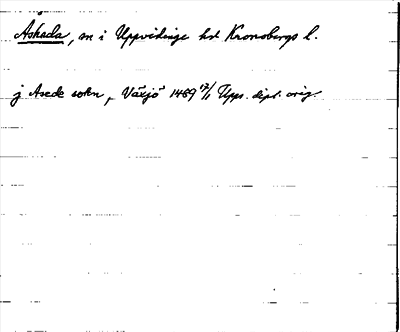 Askada, sn i Uppvidinge hd Kronobergs l.
j Asede sokn, Växjö 1489 17/1 Upps. dipl. orig.